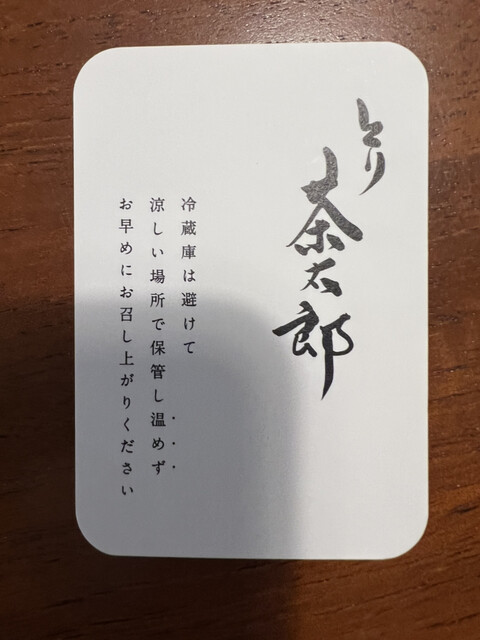 とり
茶太郎
冷蔵庫は避けて
涼しい場所で保管し温めず
お早めにお召し上がりください